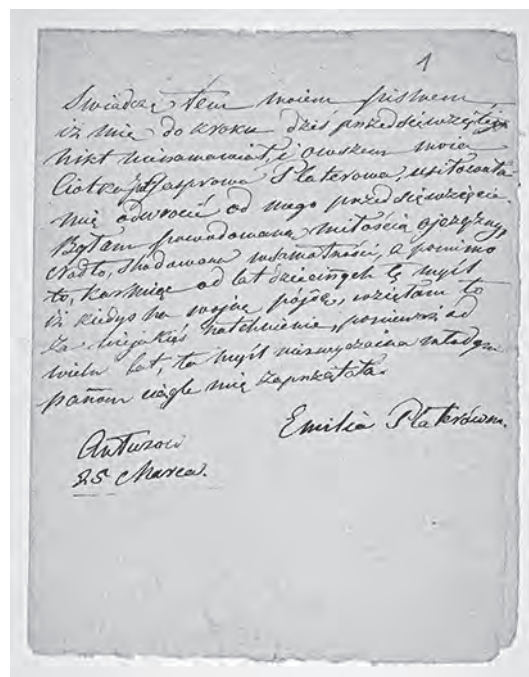 1
Swiadczę tem moiem pismem
iż mię do kroku dziś przedsięwziętego
nikt nienamawiał, i owszem moia
Ciotka Platerowa, usiłowała
mię odwrócić od mego przedsięwzięcia.
Byłam powodowana miłością ojczyzny,
a pomimo
to, karmiąc od lat dziecinnych tę myśl
iż kiedyś na wojnę pójdę, wzięłam to
za niejakiś natchnienie, ponieważ od
wielu lat, ta myśl niezwyczaina młodym
pannom ciągle mię zaprzątała.
Emilia Platerówna.
Antuzow
25 Marca.